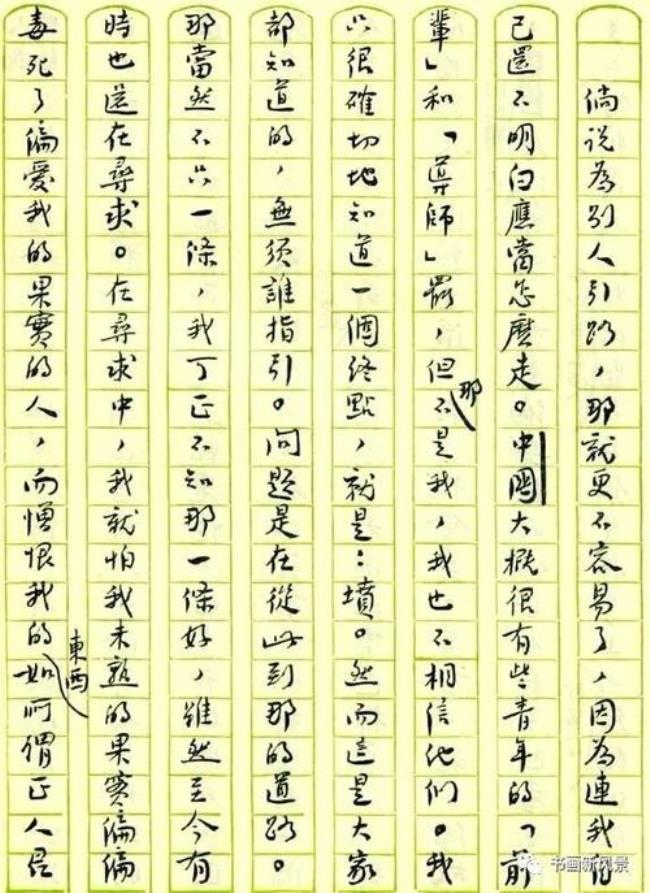 倘说為别人引路，那就更不容易了，因為連我自
己還不明白應當怎麽走。中國大概很有些青年的「前
輩」和「導師」罷，但那不是我，我也不相信他們。我
只很確切地知道一個終點，就是：墳。然而這是大家
都知道的，無須誰指引。問題是在從此到那的道路。
那當然不只一條，我可正不知那一條好，雖然至今有
時也還在尋求。在尋求中，我就怕我未熟的果實偏偏
毒死了偏愛我的果實的人，而憎恨我的東西如所謂正人君
书画新风景